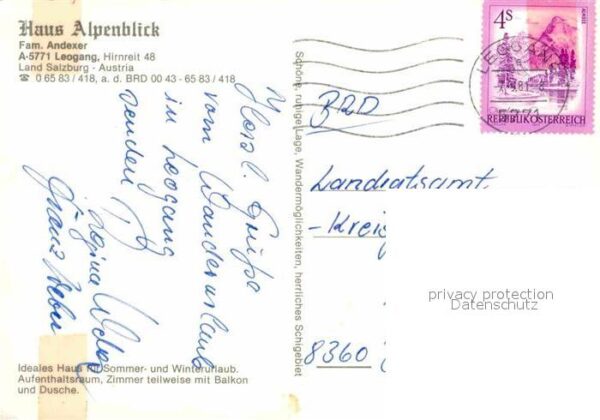 Haus Alpenblick
Fam. Andexer
A-5771 Leogang, Hirnreit 48
Land Salzburg - Austria
☎ 0 65 83 / 418, a. d. BRD 00 43 - 65 83 / 418
Herzl. Grüße
vom Wanderurlaub
in Leogang
senden
Regina
Franz
Ideales Haus für Sommer- und Winterurlaub.
Aufenthaltsraum, Zimmer teilweise mit Balkon
und Dusche.
Schöne, ruhige Lage, Wandermöglichkeiten, herrliches Schigebiet
4S
REPUBLIK ÖSTERREICH
LEOGANG
5771
BRD
Landratsamt
- Kreis
8360
privacy protection
Datenschutz